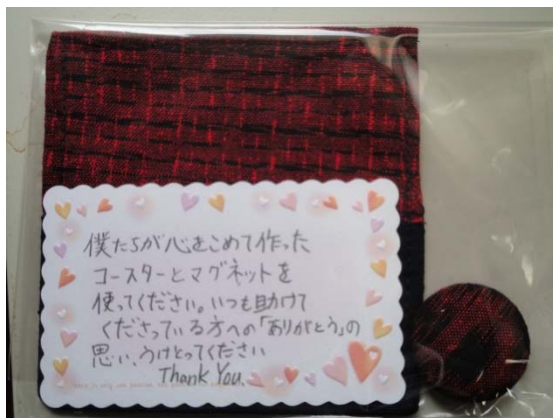 僕たちが心をこめて作った
コースターとマグネットを
使ってください。いつも助けて
くださっている方への「ありがとう」の
思い、うけとってください
Thank You.